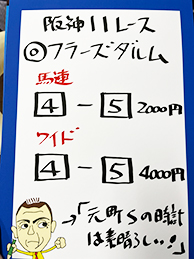 阪神11レース
◎フラーズダルム
馬連
4－5 2000円
ワイド
4－5 4000円
→「元町Sの時計
は素晴らしい…！」